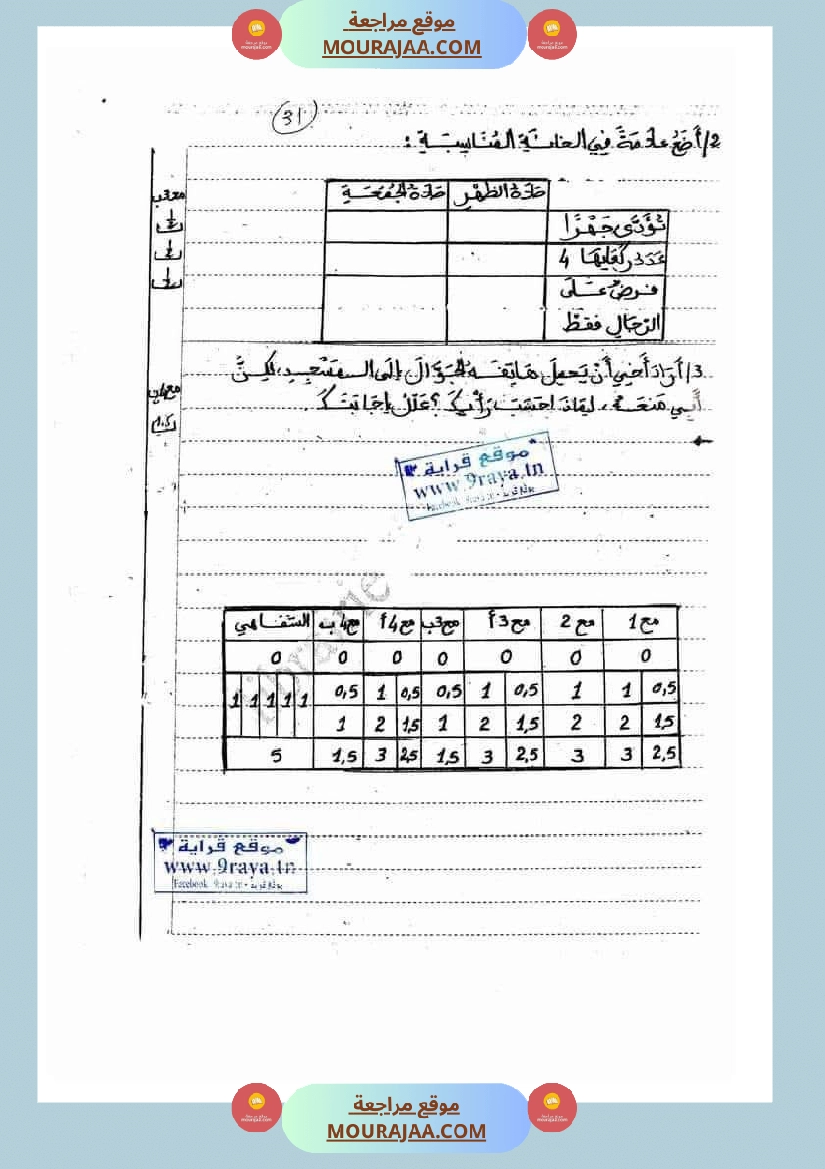 موقع مراجعة
MOURAJAA.COM
31
2/ أَضَعُ علامَةً في الخانَةِ المُنَاسِبَةِ :
صَلاةُ الظُّهْرِ صَلاةُ الجُمُعَةِ
تُؤَدَّى جَهْرًا
عَدَدُ رَكَعَاتِهَا 4
فرضٌ عَلَى
الرّجَالِ فقطْ
مع3ب
مع4ب
3/ أَرَادَ أَخِي أَنْ يَحْمِلَ هَاتِفَهُ الجَوَّالَ إِلَى المَسْجِدِ، لَكِنَّ
أَبِي مَنَعَهُ، لِمَاذَا حَسَبَ رَأْيِكَ؟ عَلِّلْ إِجَابَتَكَ.
موقع قراية
www.9raya.tn
librairie
مع1 مع2 مع3أ مع3ب مع4أ مع4ب الشفاهي
0 0 0 0 0 0 0
0,5 1 1 0,5 1 0,5 0,5 1 0,5 1 1 1 1 1
1,5 2 2 1,5 2 1 1,5 2 1
2,5 3 3 2,5 3 1,5 2,5 3 1,5 5
موقع قراية
www.9raya.tn
موقع مراجعة
MOURAJAA.COM